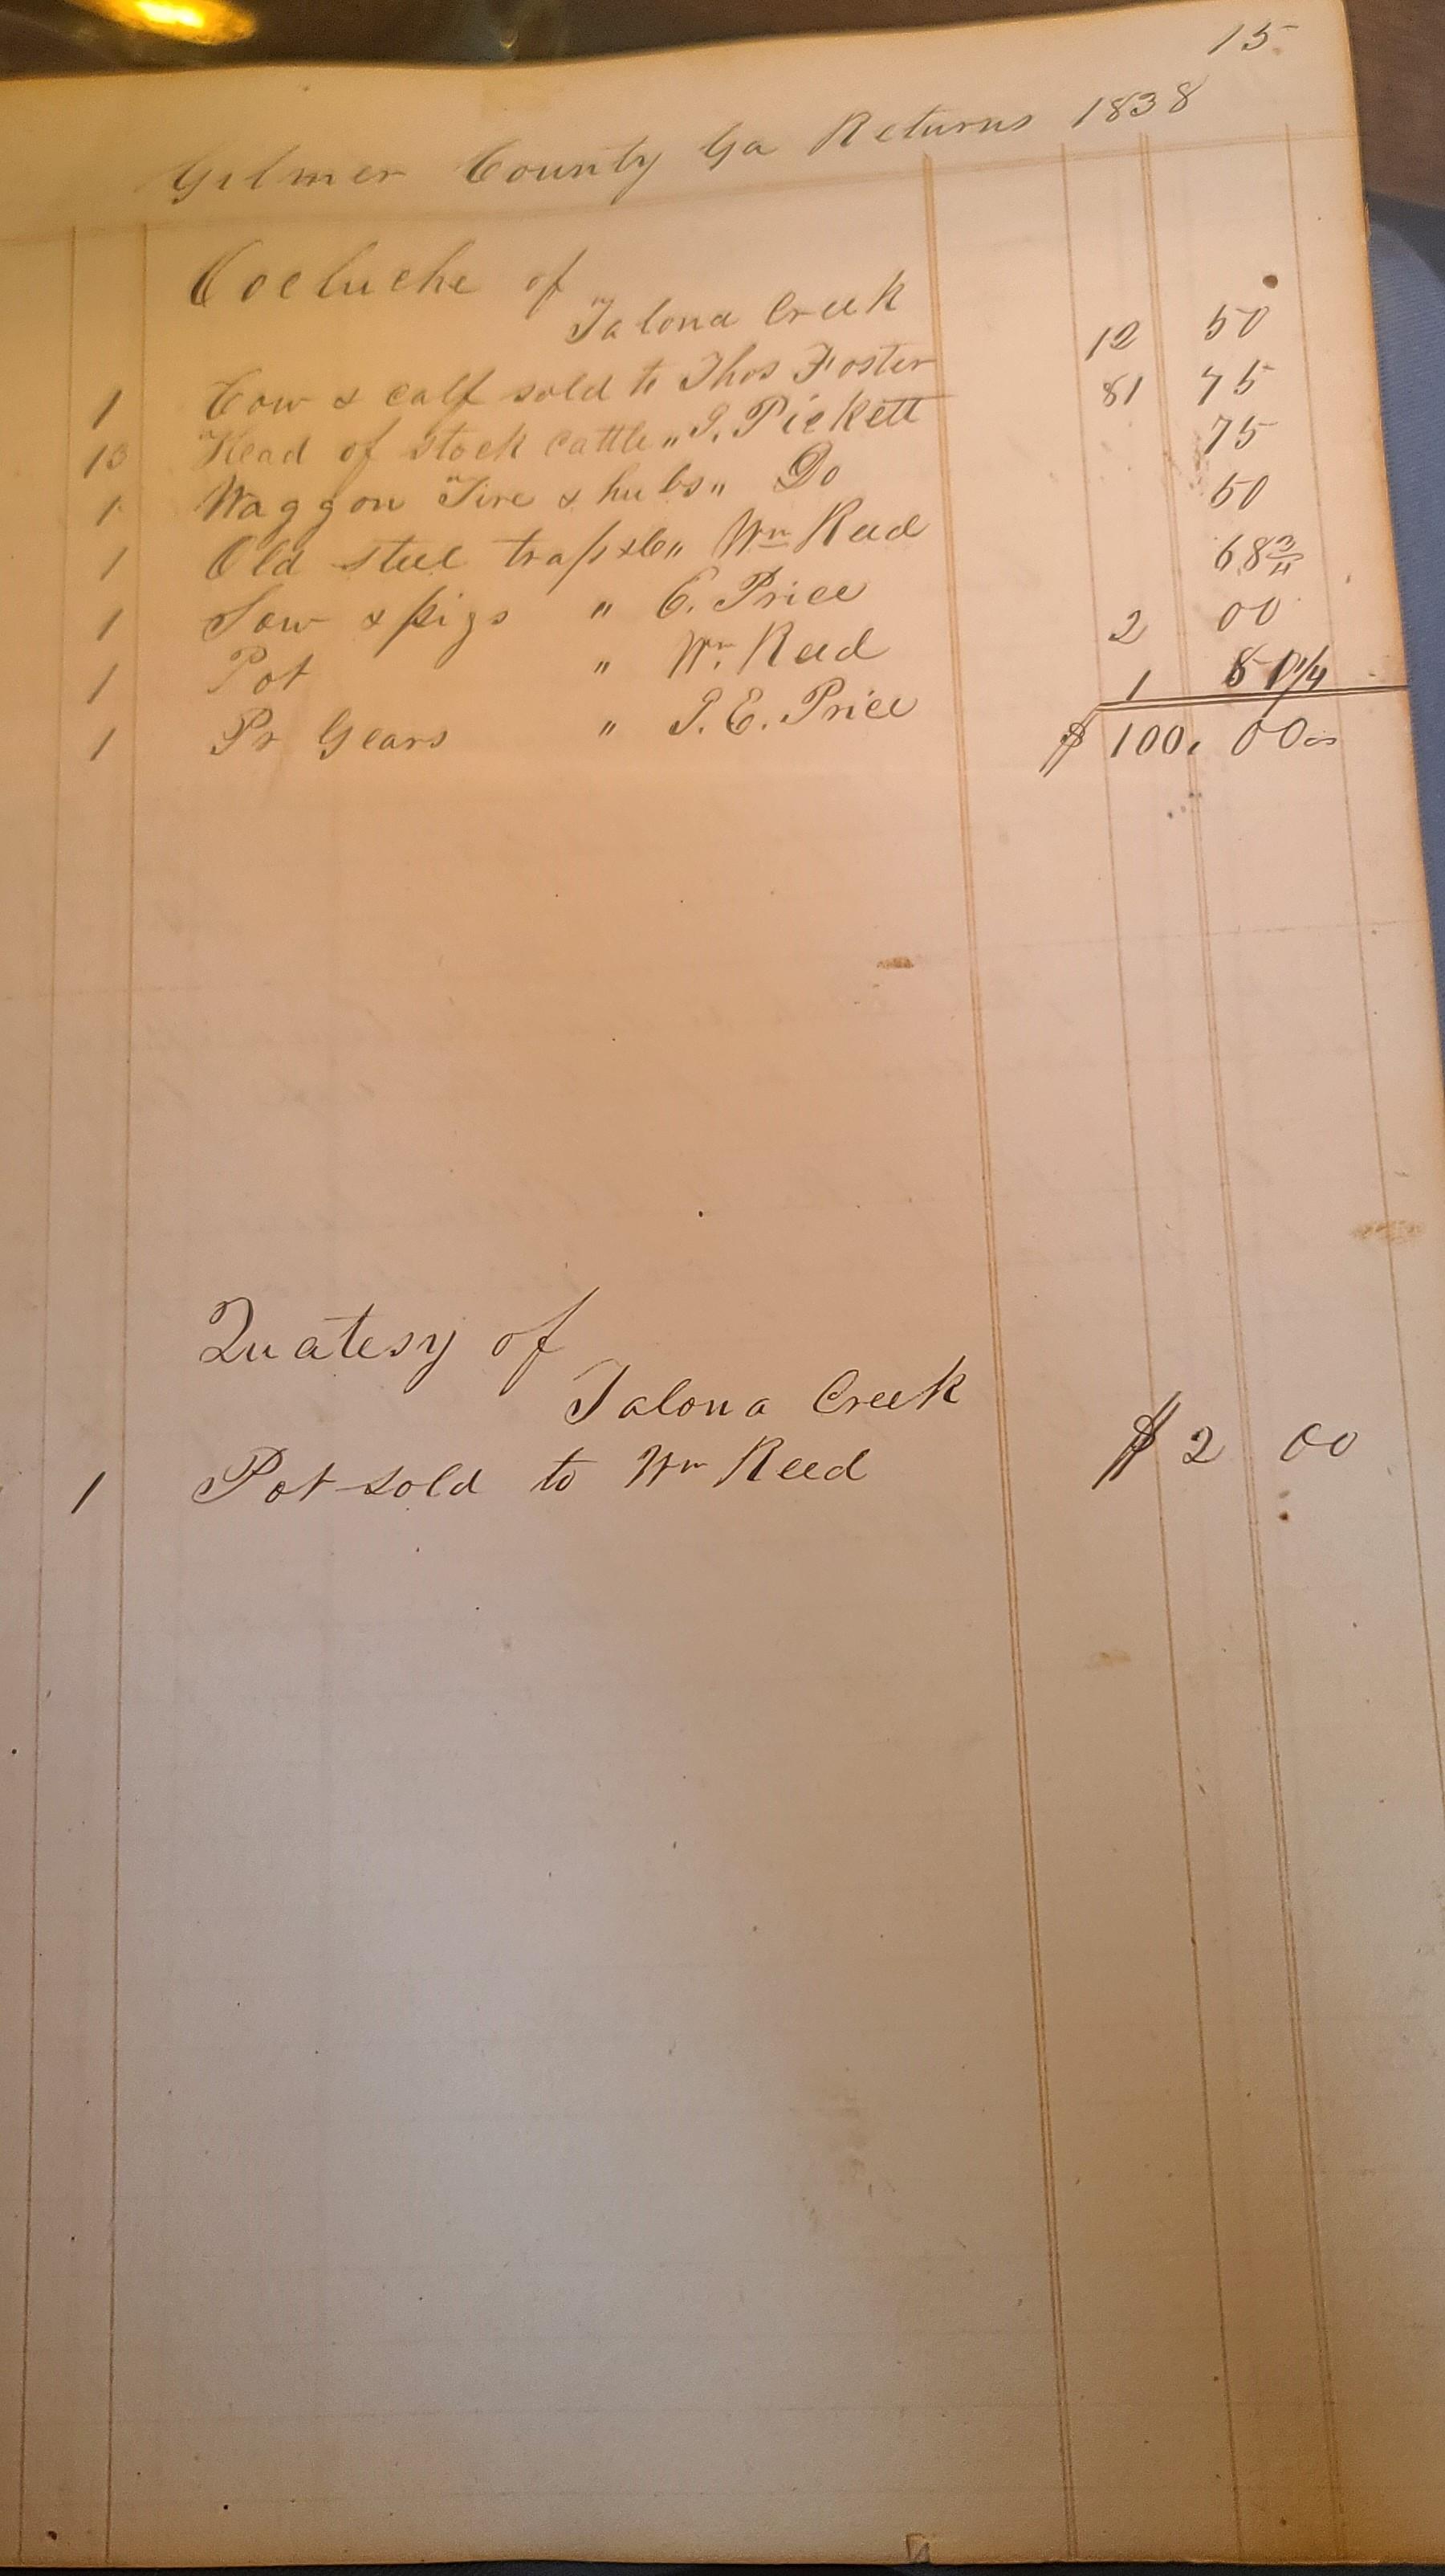 15
Gilmer County Ga Returns 1838
Coeluche of
Talona Creek
1 Cow & calf sold to Thos Foster 12 50
13 Head of stock cattle " I. Pickett 81 75
1 Waggon Tire & hubs " Do 75
1 Old steel trap &c " Wm Reed 50
1 Sow & pigs " E. Price 68 3/4
1 Pot " Wm. Reed 2 00
1 Pr Gears " I. E. Price 1 81 1/4
$ 100. 00
Quatesy of
Talona Creek
1 Pot sold to Wm Reed $ 2 00